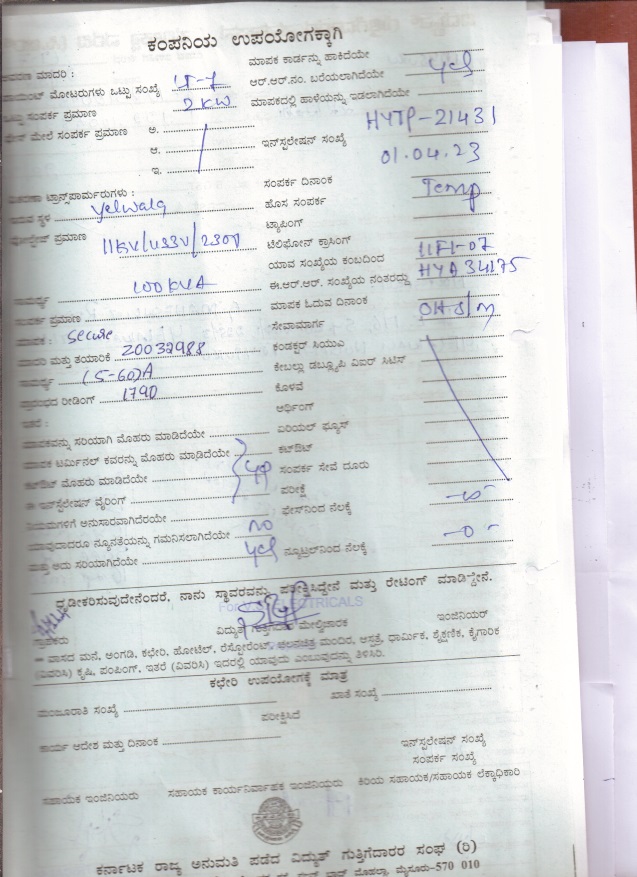 ಕಂಪನಿಯ ಉಪಯೋಗಕ್ಕಾಗಿ
ಮಾದರಿ : ಮಾಪಕ ಕಾರ್ಡನ್ನು ಹಾಕಿದೆಯೇ
ಮೋಟರುಗಳು ಒಟ್ಟು ಸಂಖ್ಯೆ ಆರ್.ಆರ್.ನಂ. ಬರೆಯಲಾಗಿದೆಯೇ yes
ಸಂಪರ್ಕ ಪ್ರಮಾಣ 2 KW ಮಾಪಕದಲ್ಲಿ ಹಾಳೆಯನ್ನು ಇಡಲಾಗಿದೆಯೇ
ಮೇಲೆ ಸಂಪರ್ಕ ಪ್ರಮಾಣ ಅ. HYTP-21431
ಆ. ಇನ್‌ಸ್ಟಲೇಷನ್ ಸಂಖ್ಯೆ
ಇ. 01.04.23
ಟ್ರಾನ್ಸ್‌ಫಾರ್ಮರುಗಳು : ಸಂಪರ್ಕ ದಿನಾಂಕ
ಸ್ಥಳ Yelwala ಹೊಸ ಸಂಪರ್ಕ Temp
ಪ್ರಮಾಣ 11KV/433V/230V ಟ್ಯಾಪಿಂಗ್
ಟೆಲಿಫೋನ್ ಕ್ರಾಸಿಂಗ್
ಯಾವ ಸಂಖ್ಯೆಯ ಕಂಬದಿಂದ 11F1-07
ಸಾಮರ್ಥ್ಯ 100 KVA ಈ.ಆರ್.ಆರ್. ಸಂಖ್ಯೆಯ ನಂತರದ್ದು HYA 34175
ಸಂಪರ್ಕ ಪ್ರಮಾಣ ಮಾಪಕ ಓದುವ ದಿನಾಂಕ
ಮಾಪಕ : Secure ಸೇವಾಮಾರ್ಗ OH
ಮತ್ತು ತಯಾರಿಕೆ 20032988 ಕಂಡಕ್ಟರ್ ಸಿಯುಎ
ಸಾಮರ್ಥ್ಯ (5-60)A ಕೇಬಲ್ಲು ಡಬ್ಲ್ಯೂಪಿ ವಿಐಆರ್ ಸಿಟಿಸ್
ಪ್ರಾರಂಭದ ರೀಡಿಂಗ್ 1790 ಕೊಳವೆ
ಇತರೆ : ಅರ್ಥಿಂಗ್
ಮಾಪಕವನ್ನು ಸರಿಯಾಗಿ ಮೊಹರು ಮಾಡಿದೆಯೇ ಏರಿಯಲ್ ಫ್ಯೂಸ್
ಮಾಪಕ ಟರ್ಮಿನಲ್ ಕವರನ್ನು ಮೊಹರು ಮಾಡಿದೆಯೇ ಕಟ್‌ಔಟ್
ಕಟ್‌ಔಟ್ ಮೊಹರು ಮಾಡಿದೆಯೇ ಸಂಪರ್ಕ ಸೇವೆ ದೂರು
ಈ ಇನ್‌ಸ್ಟಲೇಷನ್ ವೈರಿಂಗ್ ಪರೀಕ್ಷೆ
ನಿಯಮಗಳಿಗೆ ಅನುಸಾರವಾಗಿದೆಯೇ ಫೇಸ್‌ನಿಂದ ನೆಲಕ್ಕೆ
ಯಾವುದಾದರೂ ನ್ಯೂನತೆಯನ್ನು ಗಮನಿಸಲಾಗಿದೆಯೇ no
ಮತ್ತು ಅದು ಸರಿಯಾಗಿದೆಯೇ yes ನ್ಯೂಟ್ರಲ್‌ನಿಂದ ನೆಲಕ್ಕೆ -0-
ಧೃಡೀಕರಿಸುವುದೇನೆಂದರೆ, ನಾನು ಸ್ಥಾವರವನ್ನು ಪರೀಕ್ಷಿಸಿದ್ದೇನೆ ಮತ್ತು ರೇಟಿಂಗ್ ಮಾಡಿದ್ದೇನೆ.
ELECTRICALS
ಗ್ರಾಹಕರು ವಿದ್ಯುತ್ ಗುತ್ತಿಗೆದಾರ ಮೇಲ್ವಿಚಾರಕ ಇಂಜಿನಿಯರ್
ವಾಸದ ಮನೆ, ಅಂಗಡಿ, ಕಛೇರಿ, ಹೋಟೆಲ್, ರೆಸ್ಟೋರೆಂಟ್, ಚಲನಚಿತ್ರ ಮಂದಿರ, ಆಸ್ಪತ್ರೆ, ಧಾರ್ಮಿಕ, ಶೈಕ್ಷಣಿಕ, ಕೈಗಾರಿಕ
(ವಿವರಿಸಿ) ಕೃಷಿ, ಪಂಪಿಂಗ್, ಇತರೆ (ವಿವರಿಸಿ) ಇದರಲ್ಲಿ ಯಾವುದು ಎಂಬುವುದನ್ನು ತಿಳಿಸಿರಿ.
ಕಛೇರಿ ಉಪಯೋಗಕ್ಕೆ ಮಾತ್ರ
ಮಂಜೂರಾತಿ ಸಂಖ್ಯೆ ಖಾತೆ ಸಂಖ್ಯೆ
ಪರೀಕ್ಷಿಸಿದೆ
ಕಾರ್ಯ ಆದೇಶ ಮತ್ತು ದಿನಾಂಕ
ಇನ್‌ಸ್ಟಲೇಷನ್ ಸಂಖ್ಯೆ
ಸಂಪರ್ಕ ಸಂಖ್ಯೆ
ಸಹಾಯಕ ಇಂಜಿನಿಯರು ಸಹಾಯಕ ಕಾರ್ಯನಿರ್ವಾಹಕ ಇಂಜಿನಿಯರು ಕಿರಿಯ ಸಹಾಯಕ/ಸಹಾಯಕ ಲೆಕ್ಕಾಧಿಕಾರಿ
ಕರ್ನಾಟಕ ರಾಜ್ಯ ಅನುಮತಿ ಪಡೆದ ವಿದ್ಯುತ್ ಗುತ್ತಿಗೆದಾರರ ಸಂಘ (ರಿ)
ಮೊಹಲ್ಲಾ, ಮೈಸೂರು-570 010